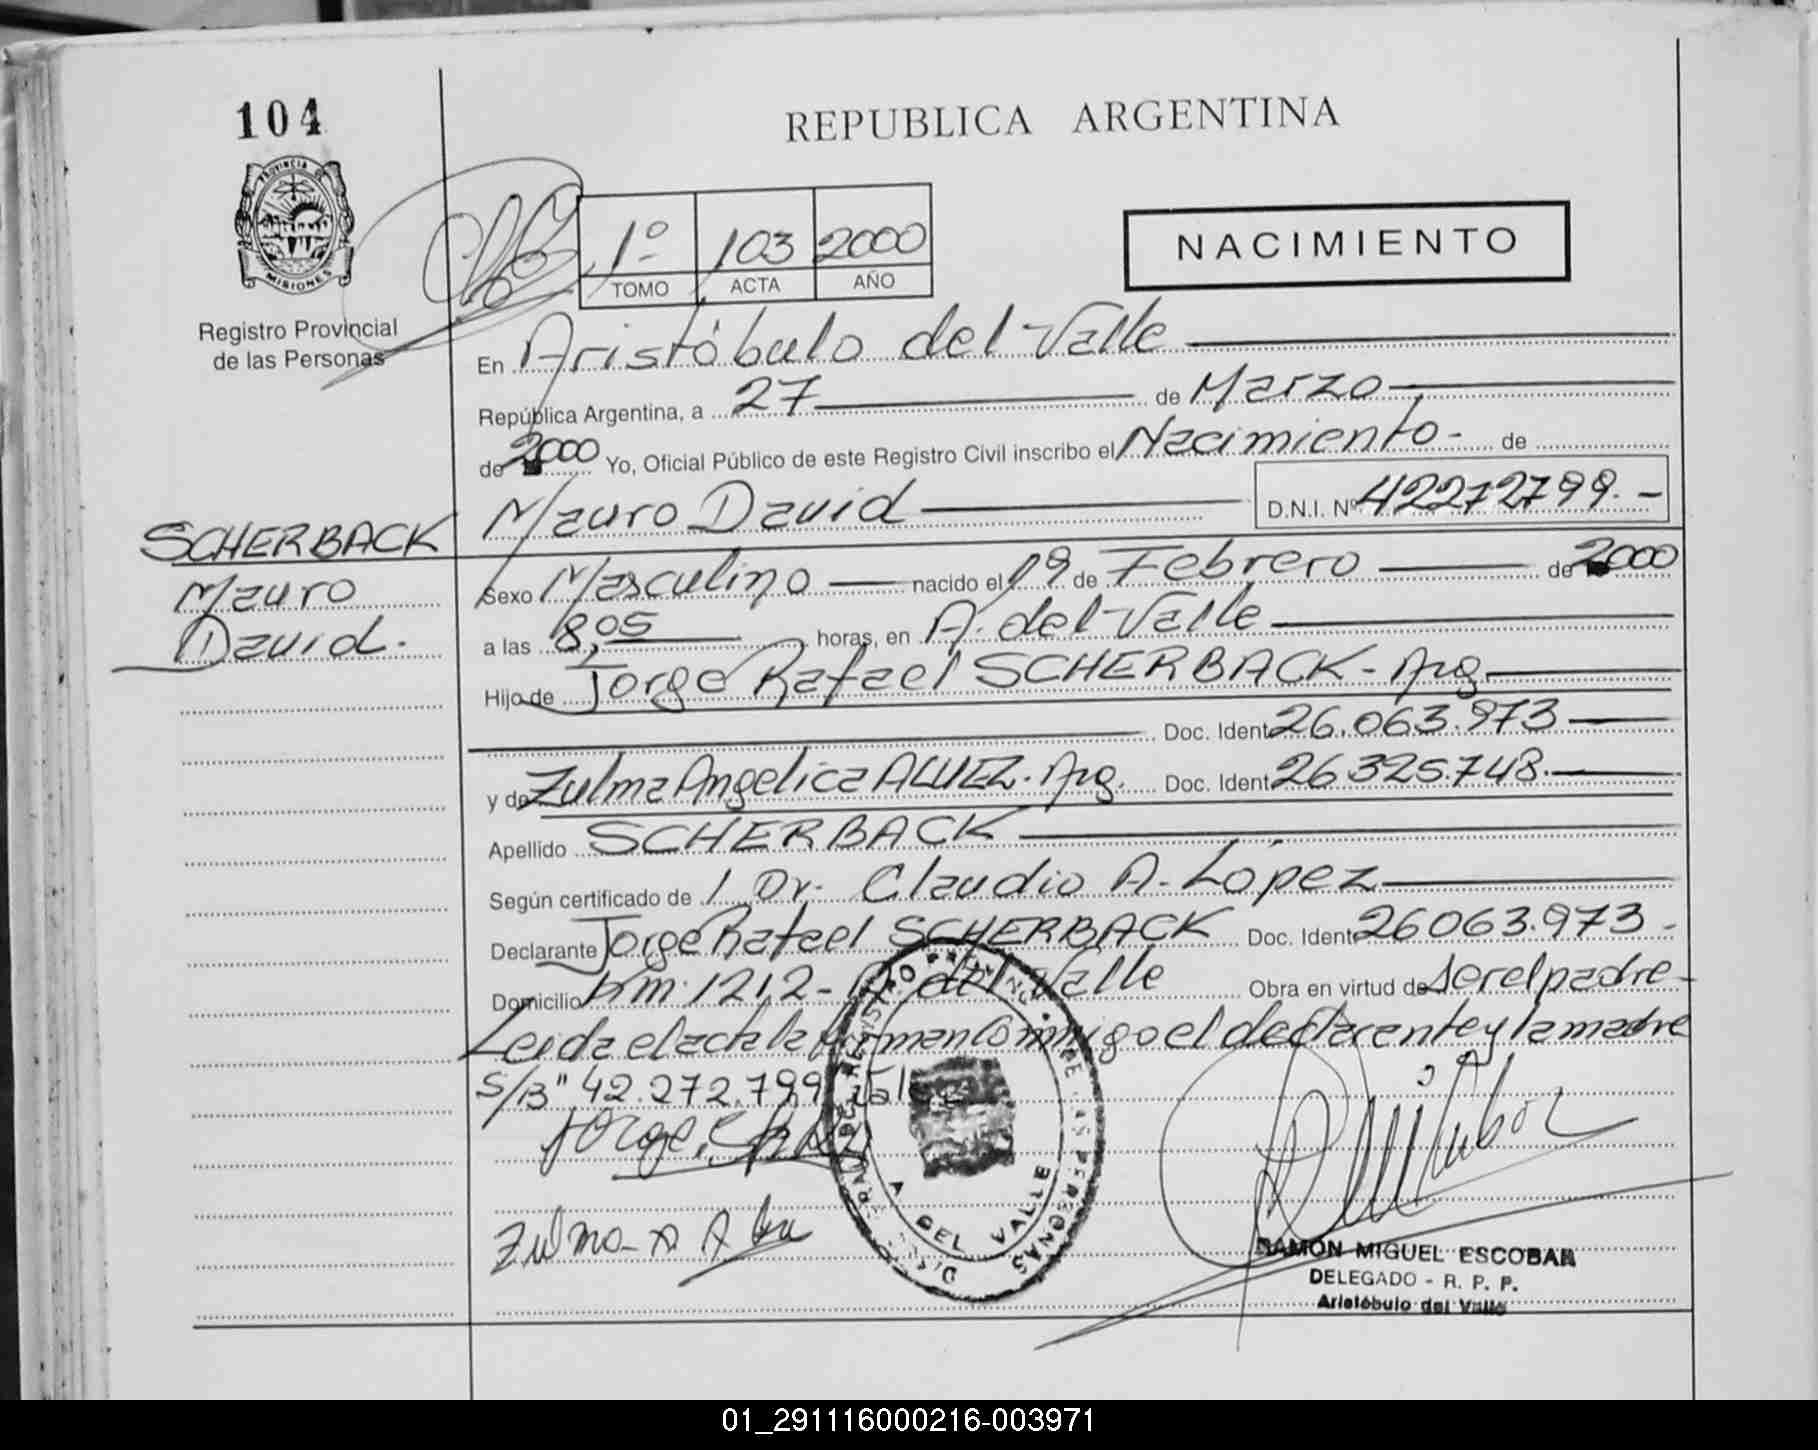 104
REPUBLICA ARGENTINA
PROVINCIA DE
MISIONES
Registro Provincial
de las Personas
1º 103 2000
TOMO ACTA AÑO
NACIMIENTO
En Aristóbulo del Valle
República Argentina, a 27 de Marzo
de 2000 Yo, Oficial Público de este Registro Civil inscribo el Nacimiento- de
Mauro David D.N.I. Nº 42272799.-
SCHERBACK
Mauro
David.
Sexo Masculino nacido el 19 de Febrero de 2000
a las 8,05 horas, en A. del Valle
Hijo de Jorge Rafael SCHERBACK - Arg
Doc. Ident 26.063.973
y de Zulma Angelica ALVEZ. Arg. Doc. Ident 26325.748.
Apellido SCHERBACK
Según certificado de / Dr. Claudio A. López
Declarante Jorge Rafael SCHERBACK Doc. Ident 26063.973-
Domicilio km. 1212- A. del Valle Obra en virtud de ser el padre-
Leida el acta la firman conmigo el declarente y la madre
S/B" 42.272.799 Vale
Jorge
Zulma A
A DEL VALLE
RAMON MIGUEL ESCOBAR
DELEGADO - R. P. P.
Aristóbulo del Valle
01_291116000216-003971